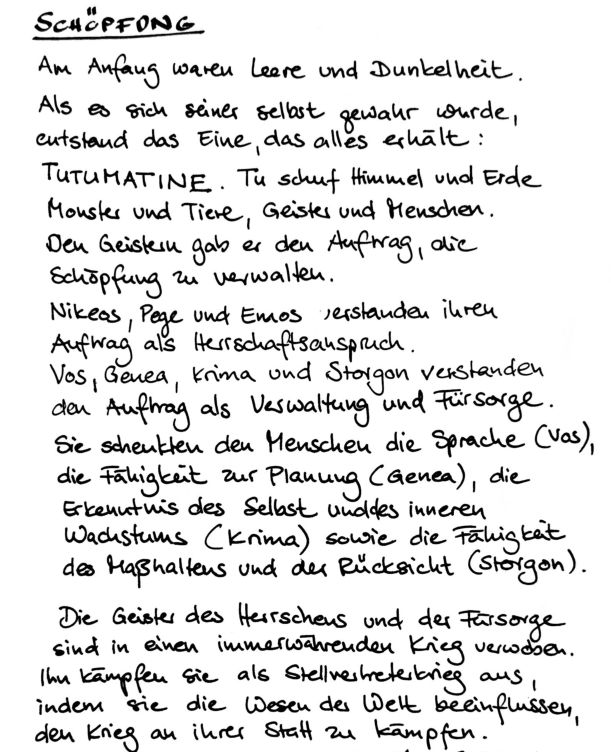 SCHÖPFUNG
Am Anfang waren Leere und Dunkelheit.
Als es sich seiner selbst gewahr wurde,
entstand das Eine, das alles erhält:
TUTUMATINE. Tu schuf Himmel und Erde
Monster und Tiere, Geister und Menschen.
Den Geistern gab er den Auftrag, die
Schöpfung zu verwalten.
Nikeos, Pege und Emos verstanden ihren
Auftrag als Herrschaftsanspruch.
Vos, Genea, Krima und Storgon verstanden
den Auftrag als Verwaltung und Fürsorge.
Sie schenkten den Menschen die Sprache (Vos),
die Fähigkeit zur Planung (Genea), die
Erkenntnis des Selbst und des inneren
Wachstums (Krima) sowie die Fähigkeit
des Maßhaltens und der Rücksicht (Storgon).
Die Geister des Herrschens und der Fürsorge
sind in einen immerwährenden Krieg verwoben.
Ihn kämpfen sie als Stellvertreterkrieg aus,
indem sie die Wesen der Welt beeinflussen,
den Krieg an ihrer Statt zu kämpfen.